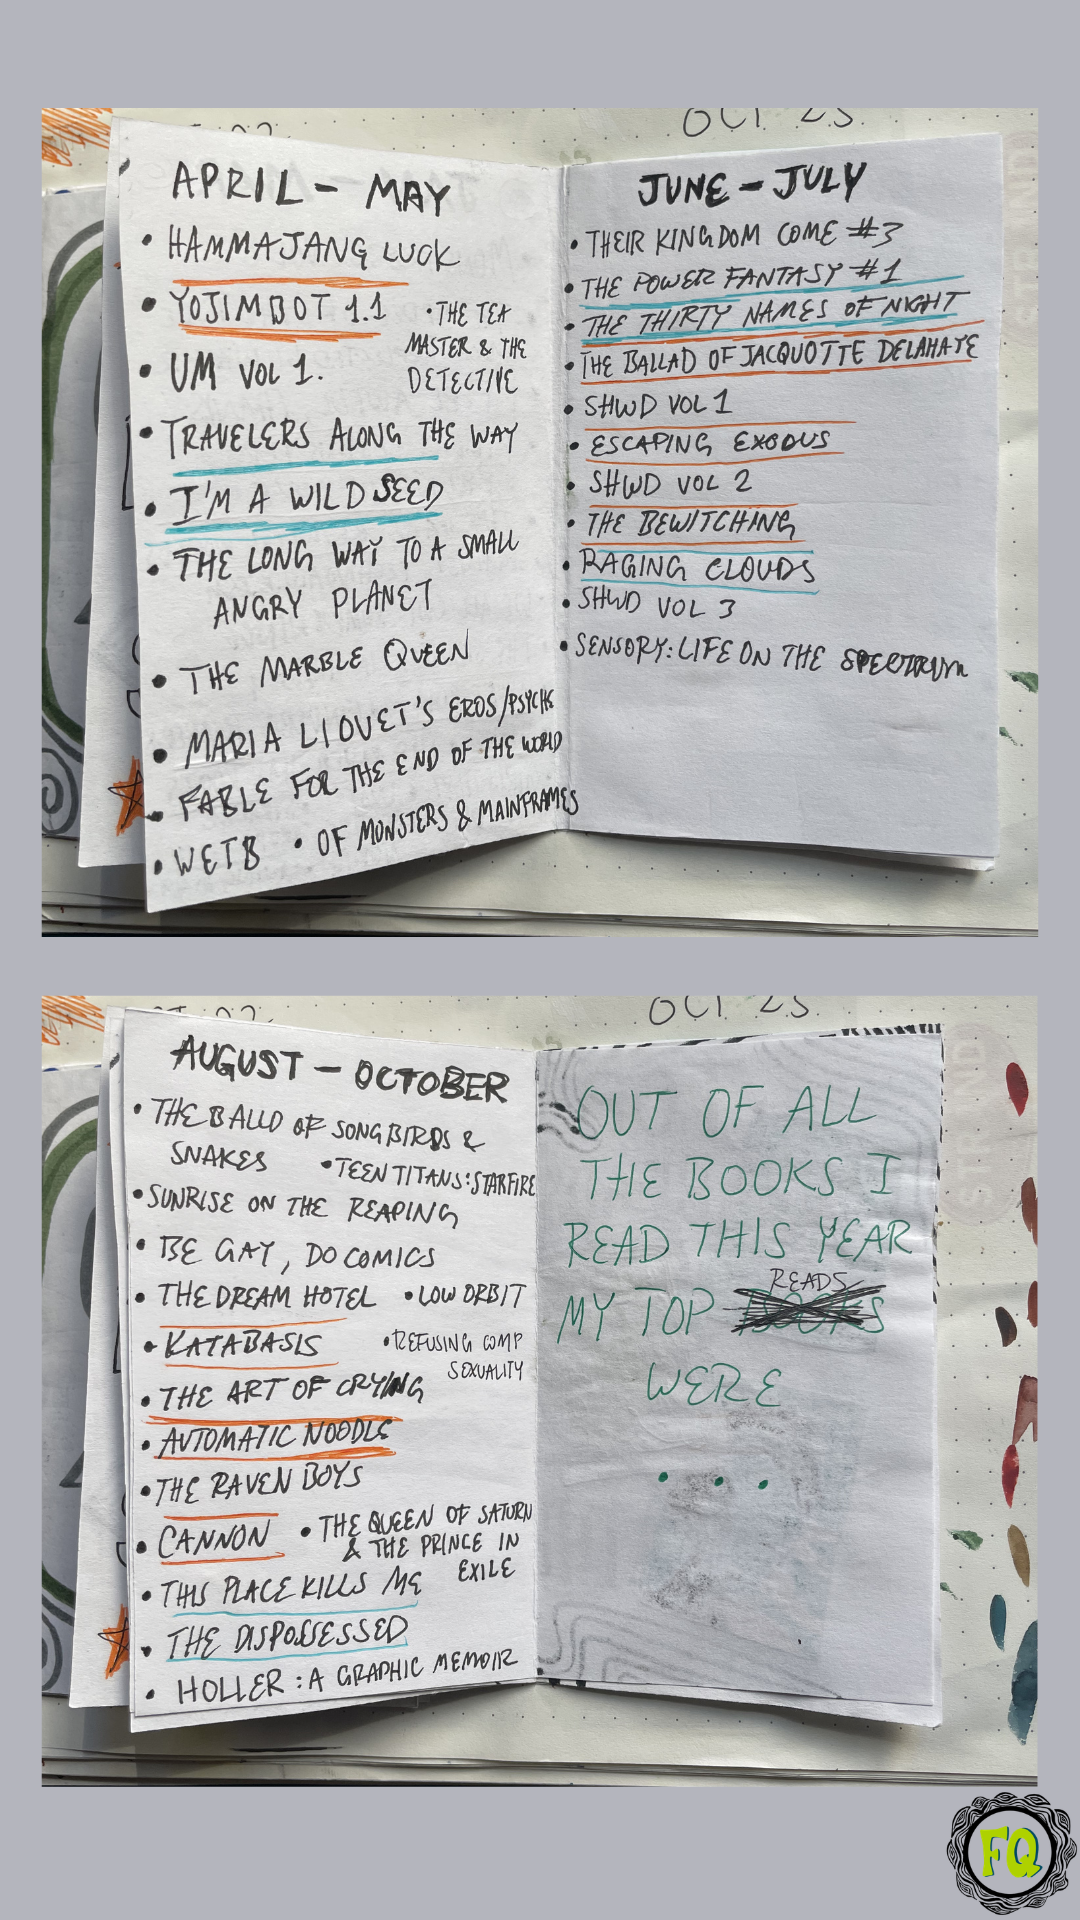 OCT 25
APRIL - MAY
• HAMMAJANG LUCK
• YOJIMBOT 1.1
• THE TEA
MASTER & THE
DETECTIVE
• UM VOL 1.
• TRAVELERS ALONG THE WAY
• I'M A WILD SEED
• THE LONG WAY TO A SMALL
ANGRY PLANET
• THE MARBLE QUEEN
• MARIA LLOVET'S EROS/PSYCHE
• FABLE FOR THE END OF THE WORLD
• WETB
• OF MONSTERS & MAINFRAMES
JUNE - JULY
• THEIR KINGDOM COME #3
• THE POWER FANTASY #1
• THE THIRTY NAMES OF NIGHT
• THE BALLAD OF JACQUOTTE DELAHAYE
• SHWD VOL 1
• ESCAPING EXODUS
• SHWD VOL 2
• THE BEWITCHING
• RAGING CLOUDS
• SHWD VOL 3
• SENSORY: LIFE ON THE SPECTRUM
OCT 25
AUGUST - OCTOBER
• THE BALLD OF SONGBIRDS &
SNAKES
• TEEN TITANS: STARFIRE
• SUNRISE ON THE REAPING
• BE GAY, DO COMICS
• THE DREAM HOTEL
• LOW ORBIT
• KATABASIS
• REFUSING COMP
SEXUALITY
• THE ART OF CRYING
• AUTOMATIC NOODLE
• THE RAVEN BOYS
• CANNON
• THE QUEEN OF SATURN
& THE PRINCE IN
EXILE
• THIS PLACE KILLS ME
• THE DISPOSSESSED
• HOLLER: A GRAPHIC MEMOIR
OUT OF ALL
THE BOOKS I
READ THIS YEAR
MY TOP READS
WERE
...
FQ